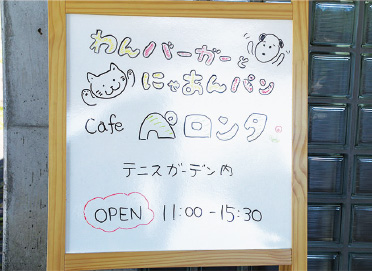 わんバーガーと
にゃあんパン
Cafe ペロンタ
テニスガーデン内
OPEN 11:00-15:30